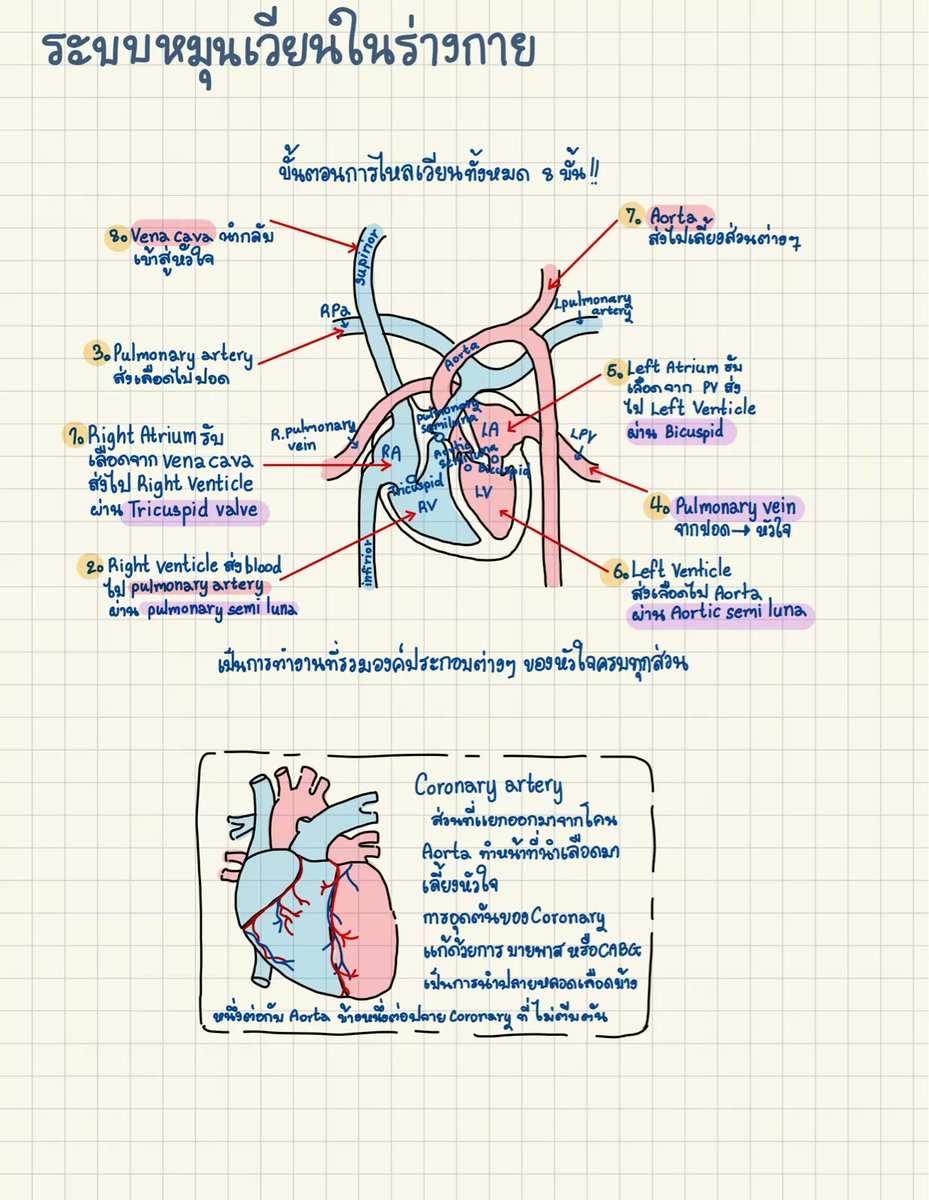 ระบบหมุนเวียนในร่างกาย
ขั้นตอนการไหลเวียนทั้งหมด 8 ขั้น!!
8. Vena cava นำกลับ
เข้าสู่หัวใจ
7. Aorta
ส่งไปเลี้ยงส่วนต่างๆ
supirior
RPa
Lpulmonary
artery
3. Pulmonary artery
ส่งเลือดไปปอด
Aorta
5. Left Atrium รับ
เลือดจาก PV ส่ง
ไป Left Venticle
ผ่าน Bicuspid
1. Right Atrium รับ
เลือดจาก Vena cava
ส่งไป Right Venticle
ผ่าน Tricuspid valve
R.pulmonary
vein
pulmonary
semiluna
LA
RA
Aortic
semiluna
Bicuspid
Tricuspid
LV
RV
LPV
4. Pulmonary vein
จากปอด → หัวใจ
2. Right venticle ส่ง blood
ไป pulmonary artery
ผ่าน pulmonary semi luna
infrior
6. Left Venticle
ส่งเลือดไป Aorta
ผ่าน Aortic semi luna
เป็นการทำงานที่รวมองค์ประกอบต่างๆ ของหัวใจครบทุกส่วน
Coronary artery
ส่วนที่แยกออกมาจากโคน
Aorta ทำหน้าที่นำเลือดมา
เลี้ยงหัวใจ
การอุดตันของ Coronary
แก้ด้วยการ บายพาส หรือ CABG
เป็นการนำปลายหลอดเลือดข้าง
หนึ่งต่อกับ Aorta ข้างหนึ่งต่อปลาย Coronary ที่ ไม่ตีบตัน